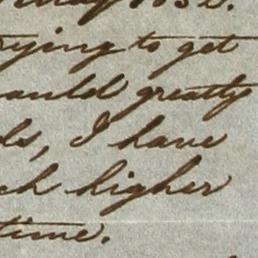 rying to get
ould greatly
ls, I have
ch higher
time.